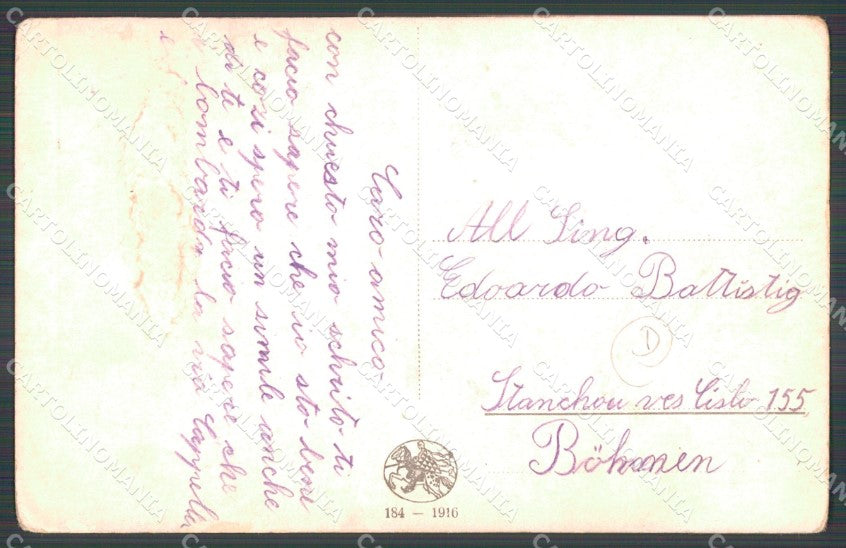 Caro amico
con chuesto mio schrito ti
facio sapere che io sto bene
e cozi spero un simile anche
di te e ti facio sapere che
bombarda la via Cappella
e
All Sing.
Edoardo Battistig
D
Stanchou ves Cislo 155
Böhmen
184 – 1916
CARTOLINOMANIA